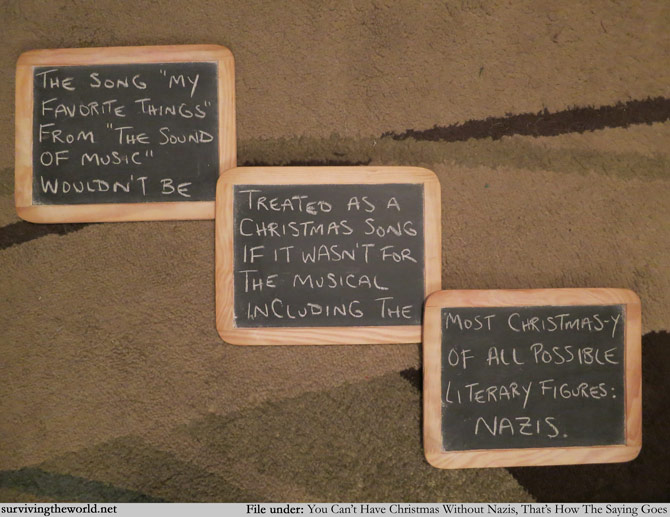 THE SONG "MY
FAVORITE THINGS"
FROM "THE SOUND
OF MUSIC"
WOULDN'T BE
TREATED AS A
CHRISTMAS SONG
IF IT WASN'T FOR
THE MUSICAL
INCLUDING THE
MOST CHRISTMAS-Y
OF ALL POSSIBLE
LITERARY FIGURES:
NAZIS.
survivingtheworld.net
File under: You Can't Have Christmas Without Nazis, That's How The Saying Goes